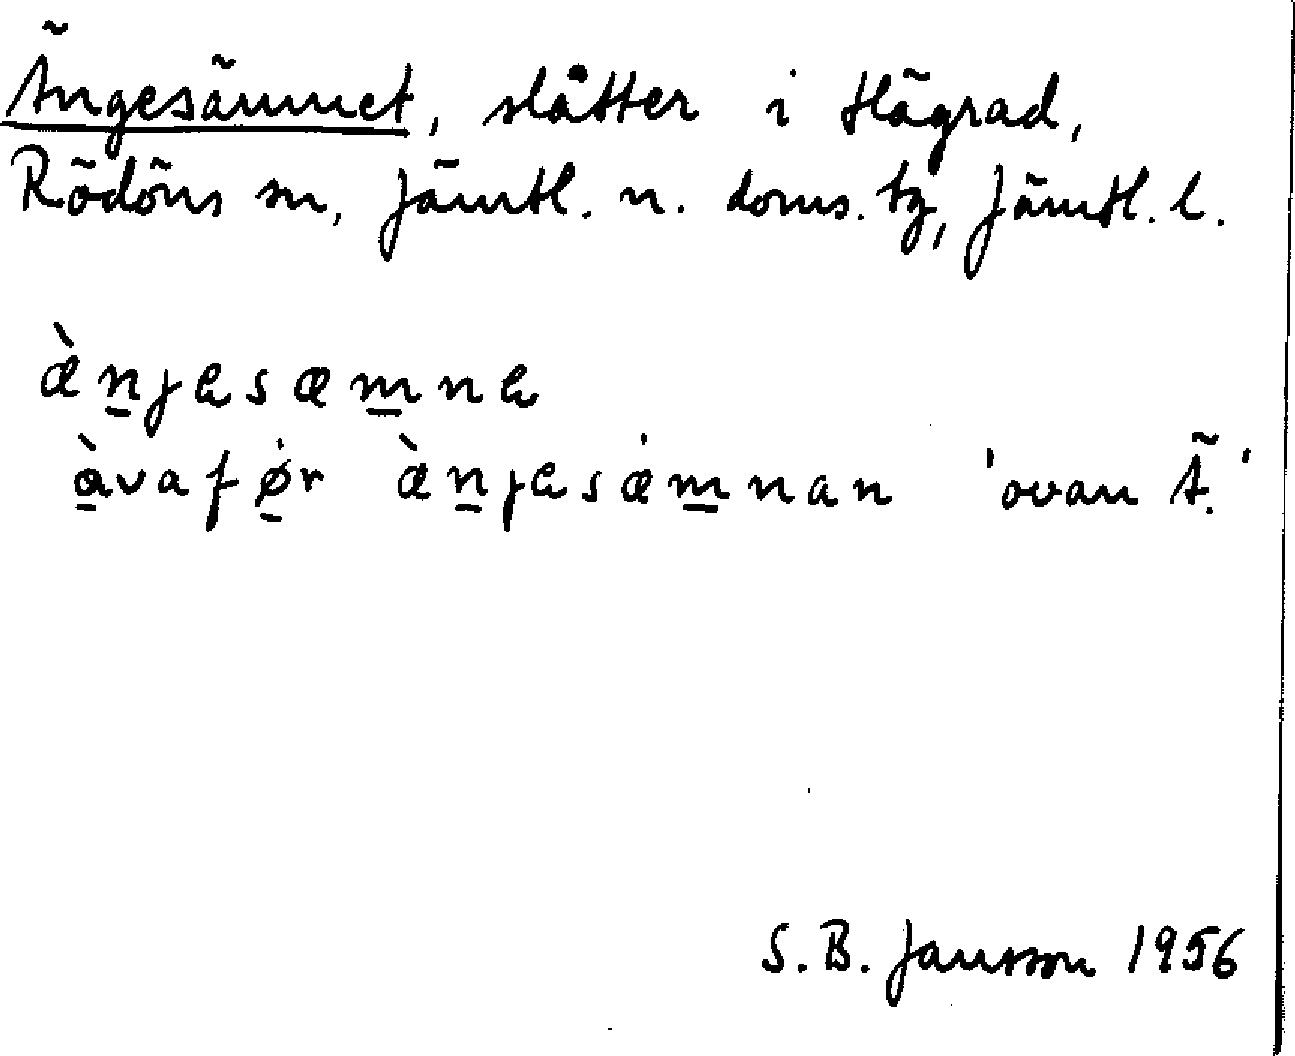 Ängesämnet, slåtter i Hägrad,
Rödöns sn, Jämtl. n. doms. tg, Jämtl. l.
æ̀n̲jesæm̲ne
à̲vafø̲r æ̀n̲jesæm̲nan 'ovan Ä.'
S. B. Jansson 1956